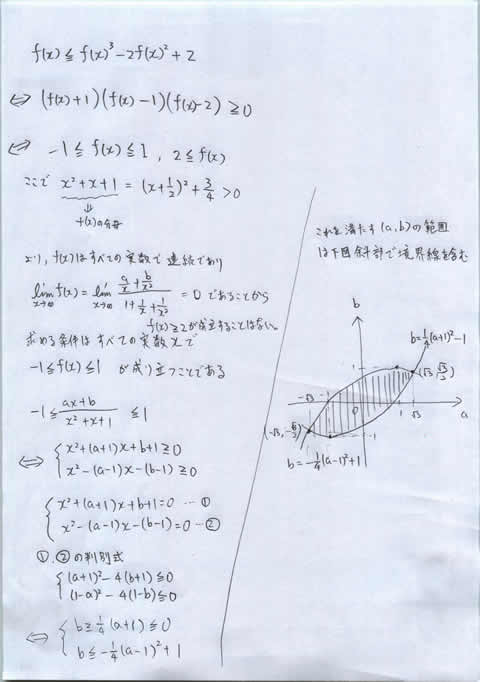 f(x) ≦ f(x)³ − 2f(x)² + 2
⇔ (f(x)+1)(f(x)−1)(f(x)−2) ≧ 0
⇔ −1 ≦ f(x) ≦ 1 , 2 ≦ f(x)
ここで x²+x+1 = (x+1/2)² + 3/4 > 0
⇓
f(x)の分母
より, f(x)はすべての実数で連続であり
lim_{x→∞} f(x) = lim_{x→∞} (a/x + b/x²)/(1 + 1/x + 1/x²) = 0 であることから
f(x)≧2が成立することはない。
求める条件はすべての実数xで
−1≦f(x)≦1 が成り立つことである
−1 ≦ (ax+b)/(x²+x+1) ≦ 1
⇔ { x²+(a+1)x+b+1 ≧ 0
x²−(a−1)x−(b−1) ≧ 0
{ x²+(a+1)x+b+1=0 … ①
x²−(a−1)x−(b−1)=0 … ②
①, ②の判別式
{ (a+1)²−4(b+1) ≦ 0
(1−a)²−4(1−b) ≦ 0
⇔ { b ≧ 1/4(a+1) ≦ 0
b ≦ −1/4(a−1)² + 1
これを満たす(a,b)の範囲
は下図斜部で境界線を含む
b
b=1/4(a+1)²−1
1
(√3, √3/2)
−√3
−1
0
1
√3
a
(−√3, −√3/2)
−1
b=−1/4(a−1)²+1